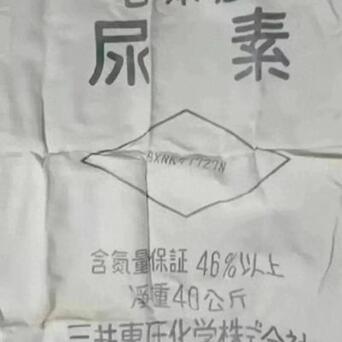 尿素
含氮量保証 46%以上
淨重40公斤
三井東圧化学株式会社